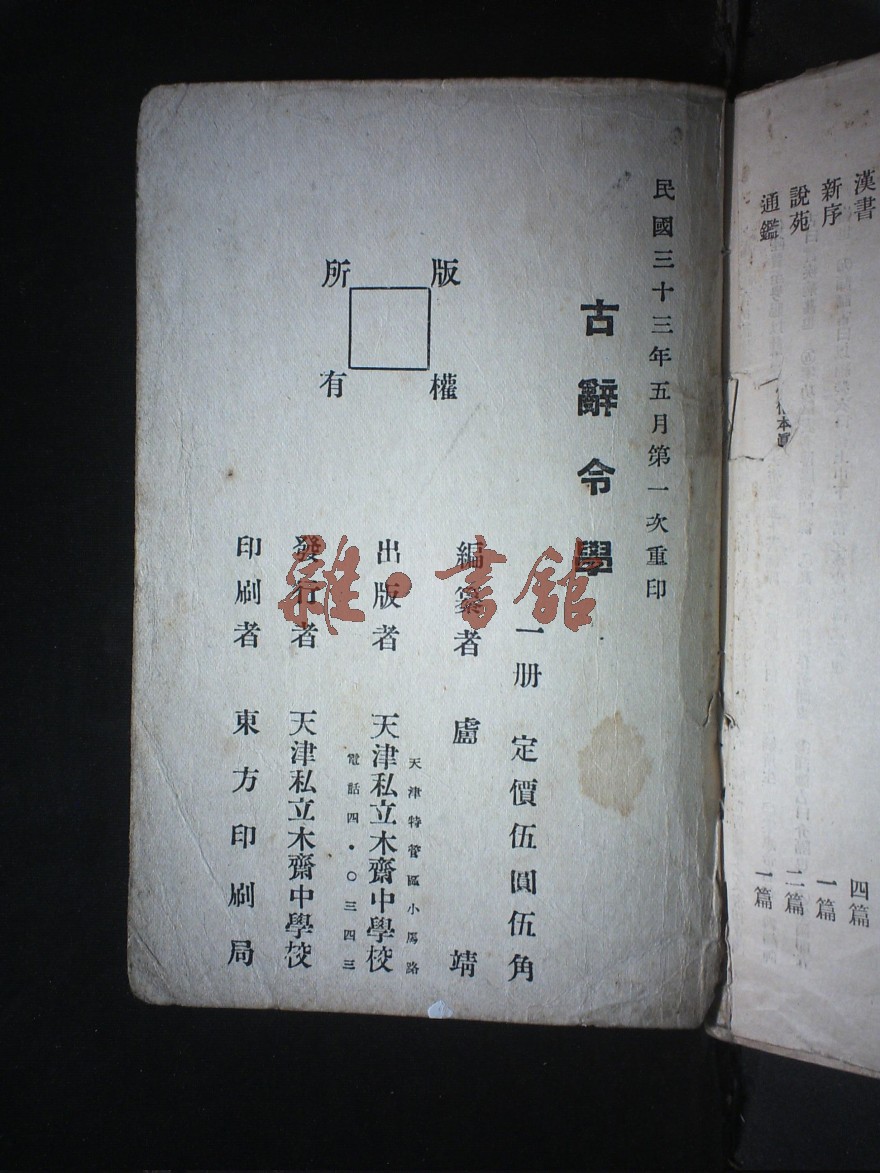 漢書 四篇
新序 一篇
說苑 二篇
通鑑 一篇
民國三十三年五月第一次重印
古辭令學
一册 定價伍圓伍角
編纂者 盧靖
天津特管區小馬路
出版者 天津私立木齋中學校
電話四·〇三四三
發行者 天津私立木齋中學校
印刷者 東方印刷局
版權所有
雜·書館